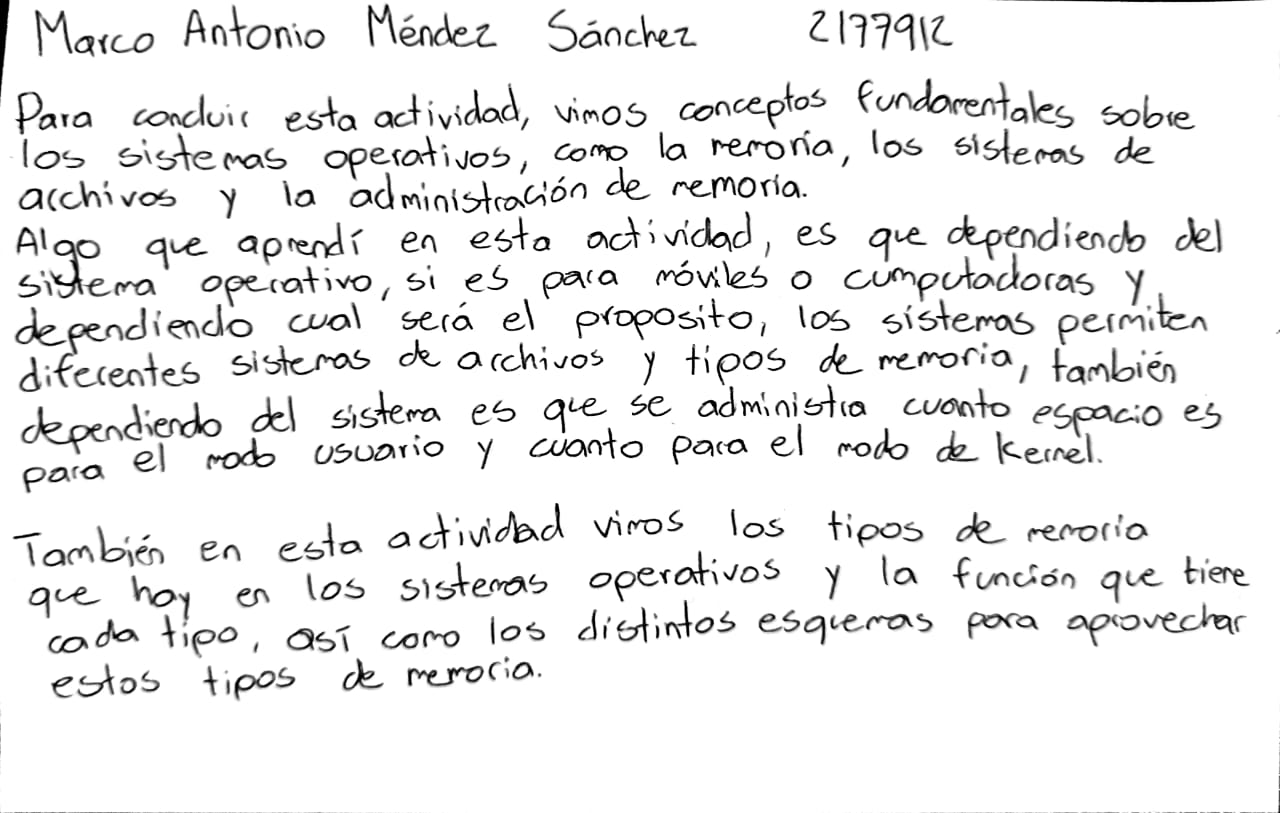 Marco Antonio Méndez Sánchez 2177912
Para concluir esta actividad, vimos conceptos fundamentales sobre
los sistemas operativos, como la memoria, los sistemas de
archivos y la administración de memoria.
Algo que aprendí en esta actividad, es que dependiendo del
sistema operativo, si es para móviles o cumputadoras y
dependiendo cual será el proposito, los sistemas permiten
diferentes sistemas de archivos y tipos de memoria, también
dependiendo del sistema es que se administra cuanto espacio es
para el modo usuario y cuanto para el modo de Kernel.
También en esta actividad vimos los tipos de memoria
que hay en los sistemas operativos y la función que tiene
cada tipo, así como los distintos esquemas para aprovechar
estos tipos de memoria.